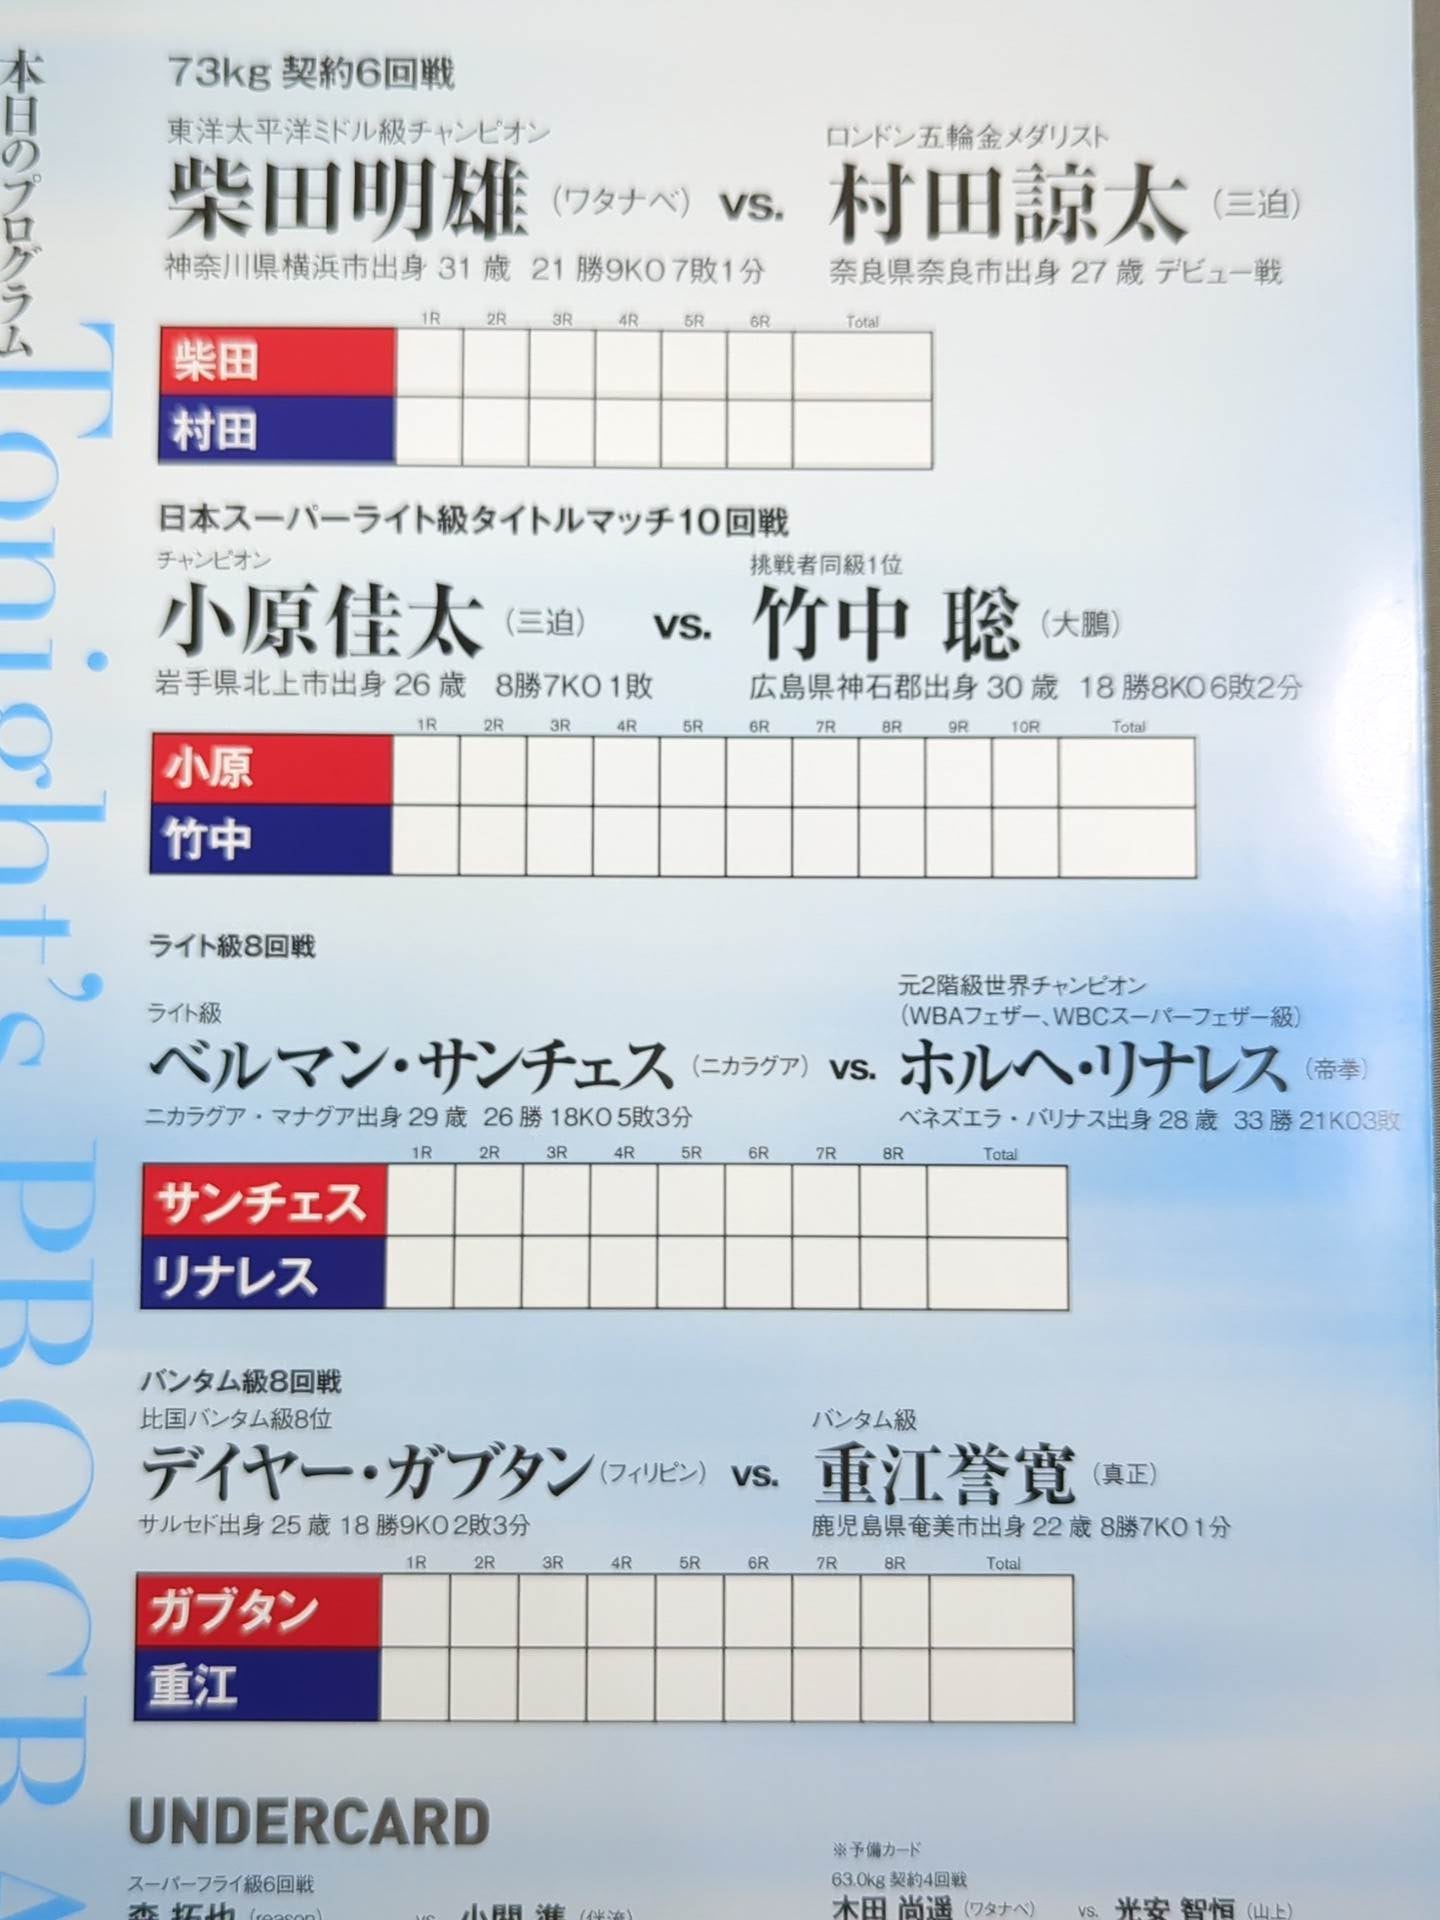 本日のプログラム
Tonight's
73kg 契約6回戦
東洋太平洋ミドル級チャンピオン
柴田明雄（ワタナベ） vs. ロンドン五輪金メダリスト
村田諒太（三迫）
神奈川県横浜市出身 31 歳 21 勝9KO 7敗1分
奈良県奈良市出身 27 歳 デビュー戦
1R 2R 3R 4R 5R 6R Total
柴田
村田
日本スーパーライト級タイトルマッチ10回戦
チャンピオン
小原佳太（三迫） vs. 挑戦者同級1位
竹中 聡（大鵬）
岩手県北上市出身 26 歳 8勝7KO 1敗
広島県神石郡出身 30 歳 18 勝8KO 6敗2分
1R 2R 3R 4R 5R 6R 7R 8R 9R 10R Total
小原
竹中
ライト級8回戦
ライト級
ベルマン・サンチェス（ニカラグア） vs. 元2階級世界チャンピオン
（WBAフェザー、WBCスーパーフェザー級）
ホルヘ・リナレス（帝拳）
ニカラグア・マナグア出身 29 歳 26 勝 18KO 5敗3分
ベネズエラ・バリナス出身 28 歳 33 勝 21KO3敗
1R 2R 3R 4R 5R 6R 7R 8R Total
サンチェス
リナレス
バンタム級8回戦
比国バンタム級8位
デイヤー・ガブタン（フィリピン） vs. バンタム級
重江誉寛（真正）
サルセド出身 25 歳 18 勝9KO 2敗3分
鹿児島県奄美市出身 22 歳 8勝7KO 1分
1R 2R 3R 4R 5R 6R 7R 8R Total
ガブタン
重江
UNDERCARD
スーパーフライ級6回戦
森 拓也（reason） vs. 小関 準
※予備カード
63.0kg 契約4回戦
木田 尚遥（ワタナベ） vs. 光安 智恒（山上）